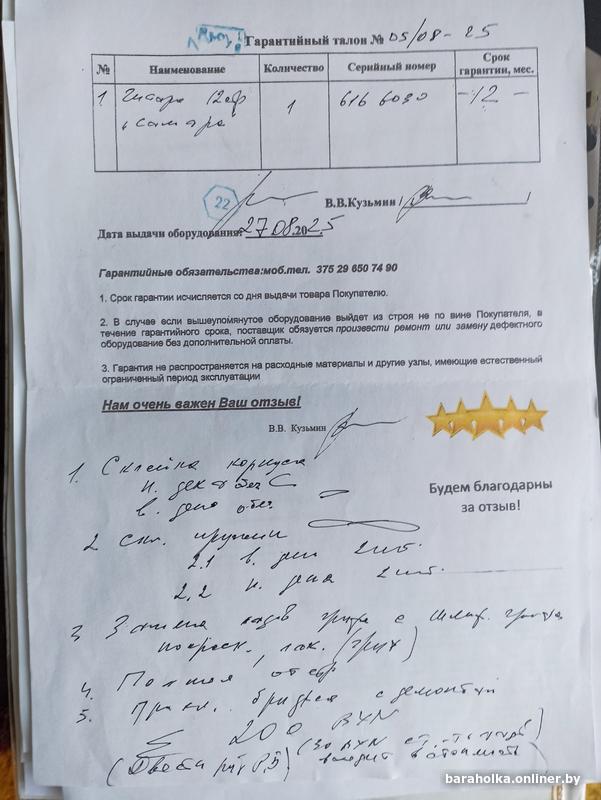 Гарантийный талон № 05/08-25
№ Наименование Количество Серийный номер Срок гарантии, мес.
1 Гитара 12стр 1 616 6030 -12-
22
В.В.Кузьмин /
Дата выдачи оборудования: 27.08.2025.
Гарантийные обязательства:моб.тел. 375 29 650 74 90
1. Срок гарантии исчисляется со дня выдачи товара Покупателю.
2. В случае если вышеупомянутое оборудование выйдет из строя не по вине Покупателя, в
течение гарантийного срока, поставщик обязуется произвести ремонт или замену дефектного
оборудование без дополнительной оплаты.
3. Гарантия не распространяется на расходные материалы и другие узлы, имеющие естественный
ограниченный период эксплуатации
Нам очень важен Ваш отзыв!
В.В. Кузьмин
Будем благодарны
за отзыв!
1. Склейка корпуса
н. дека
в. дека
2 пружин
2.1 в. 2 шт.
2.2 н. дека 2 шт.
3 грифа с
лак. (гриф)
4. Полная
5. бриджа с демонтаж
200 BYN
(Двести руб) (30 BYN входит в стоимость)
baraholka.onliner.by